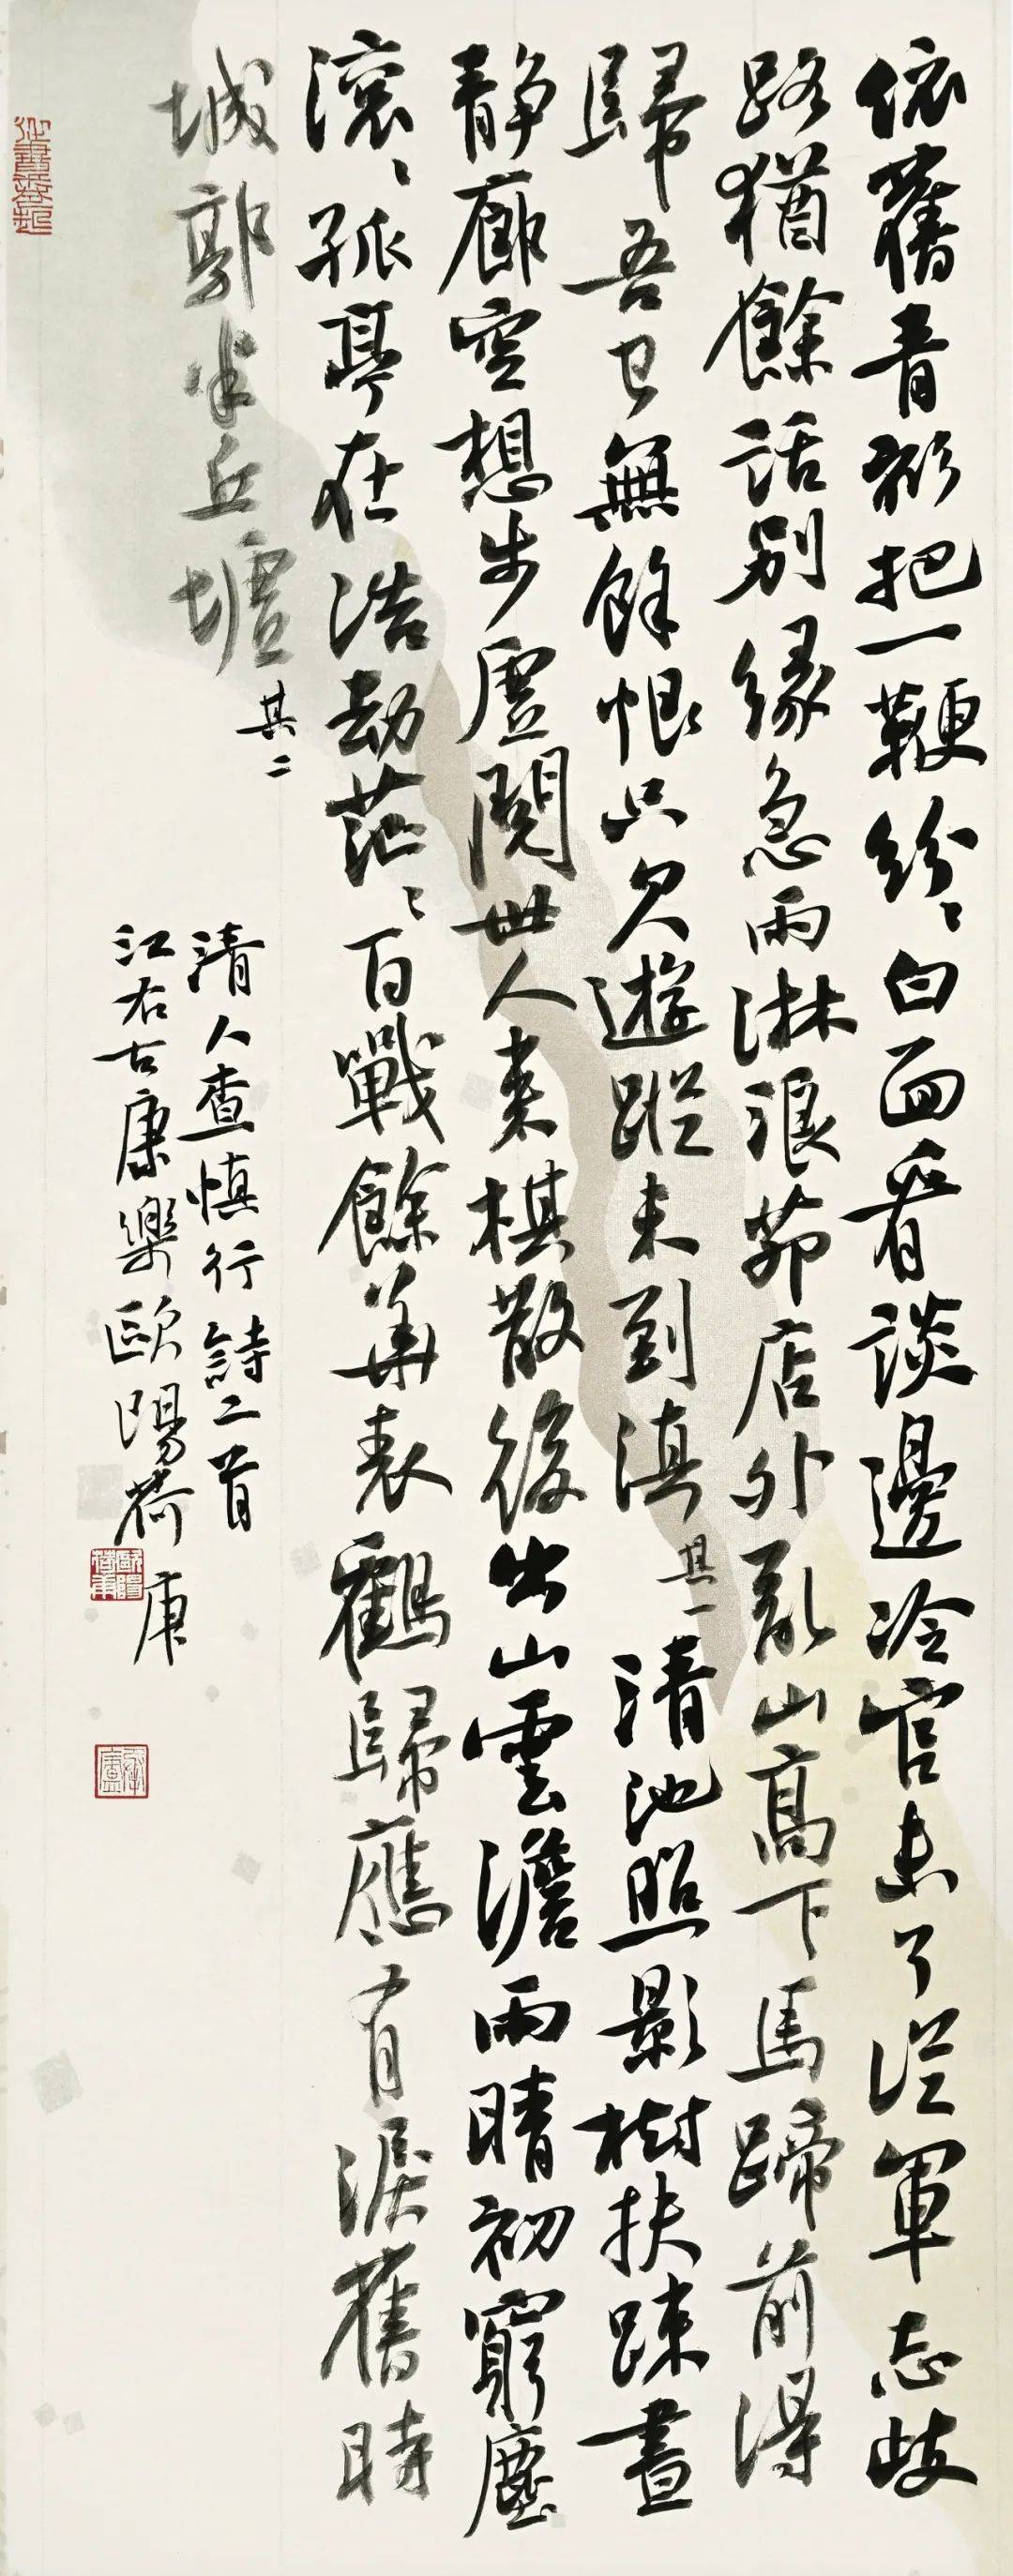 依舊青衫把一鞭紛〻白面看談邊冷官未了從軍志歧
路猶餘話別緣急雨淋浪茆店外亂山高下馬蹄前得
歸吾已無餘恨只欠遊蹤未到滇其一清池照影樹扶疎晝
静廊空想步虛閱世人來棋散後出山雲澹雨晴初窮塵
滚〻孤亭在浩劫茫〻百戰餘華表鶴歸應有淚舊時
城郭半丘墟其二
清人查慎行詩二首
江右古康樂歐陽荷庚